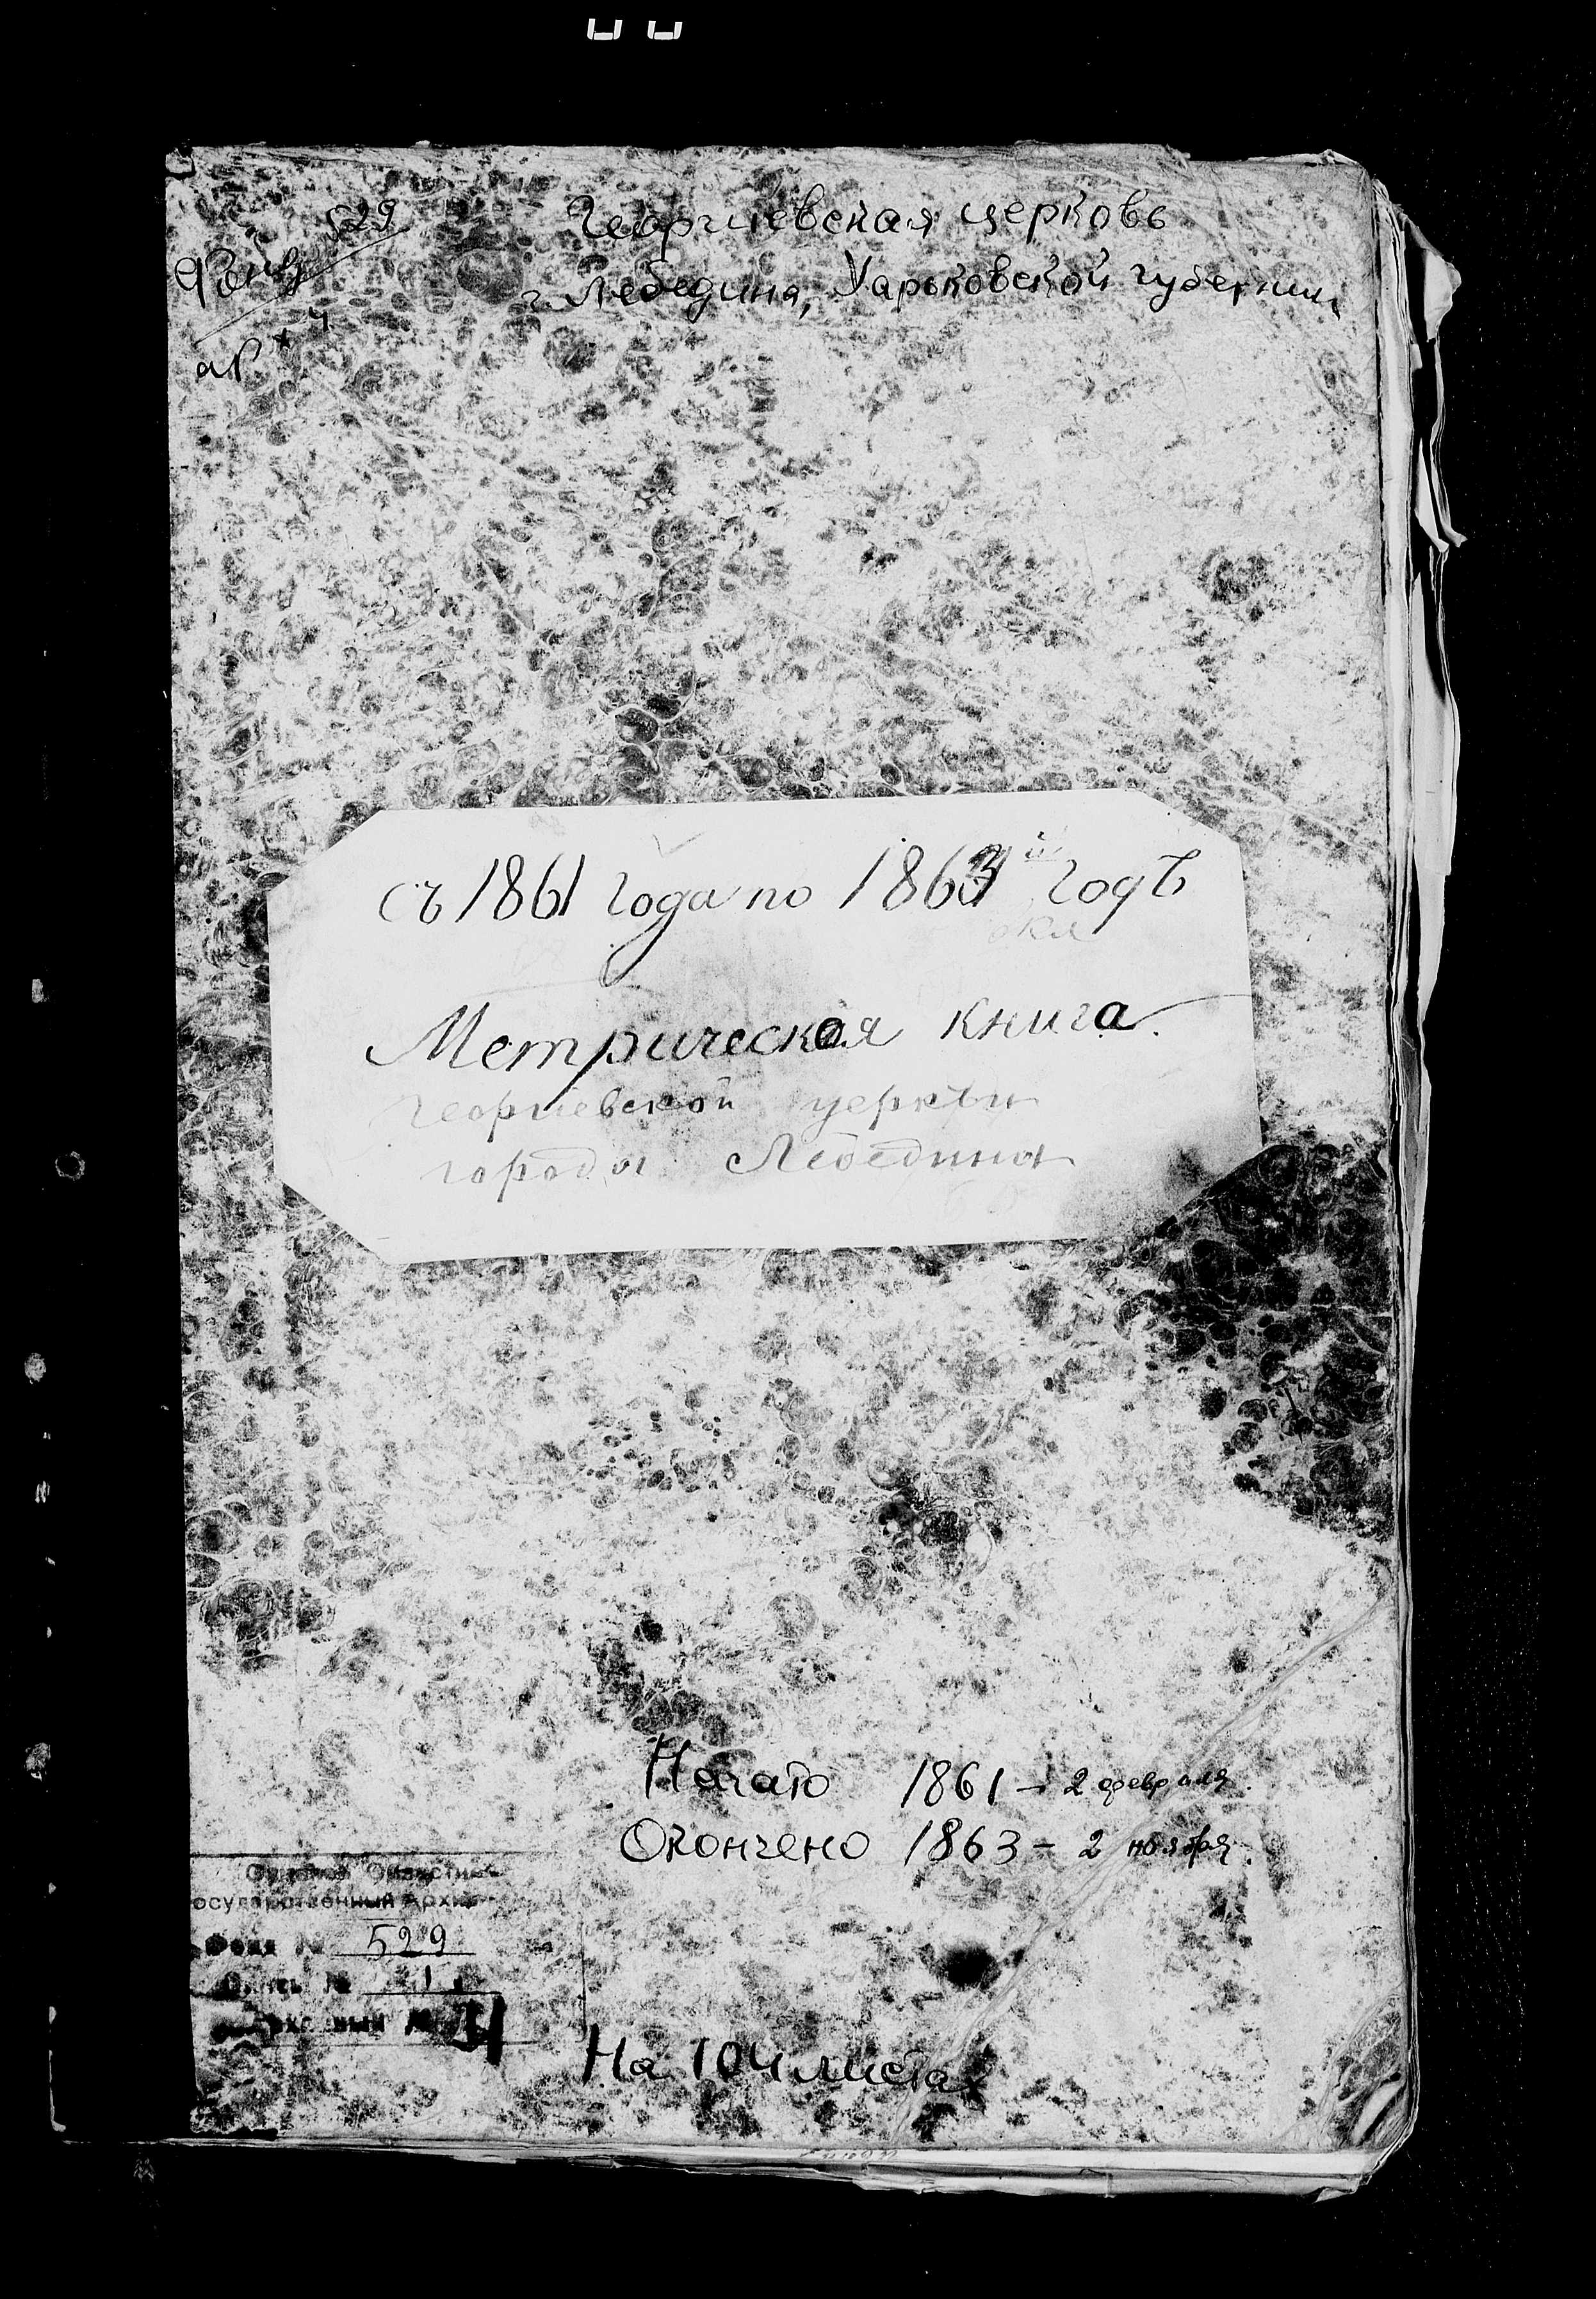 529
Фонд
Георгиевская церковь
г. Лебедина, Харьковской губернии
съ 1861 года по 1863й Годъ
Метрическая книга.
Георгіевской церкви
города Лебедина
Начато 1861 - 2 февраля.
Окончено 1863 - 2 ноября.
Государственный Архив
Фонд № 529
Опись № 1
На 104 листах